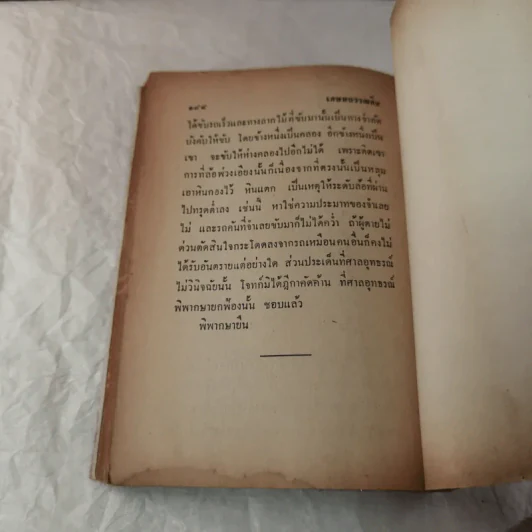 ๑๙๔
ได้ขับรถเร็วและทางลากไม้ที่ขับมานั้นเป็นทางจำกัด
บังคับให้ขับ โดยข้างหนึ่งเป็นคลอง อีกข้างหนึ่งเป็น
เขา จะขับให้ห่างคลองไปอีกไม่ได้ เพราะติดเขา
การที่ล้อพ่วงเอียงนั้นก็เนื่องจากที่ตรงนั้นเป็นหลุม
เอาหินกองไว้ หินแตก เป็นเหตุให้ระดับล้อที่ผ่าน
ไปทรุดต่ำลง เช่นนี้ หาใช่ความประมาทของจำเลย
ไม่ และรถคันที่จำเลยขับมาก็ไม่ได้คว่ำ ถ้าผู้ตายไม่
ด่วนตัดสินใจกระโดดลงจากรถเหมือนคนอื่นก็คงไม่
ได้รับอันตรายแต่อย่างใด ส่วนประเด็นที่ศาลอุทธรณ์
ไม่วินิจฉัยนั้น โจทก์มิได้ฎีกาคัดค้าน ที่ศาลอุทธรณ์
พิพากษายกฟ้องนั้น ชอบแล้ว
พิพากษายืน